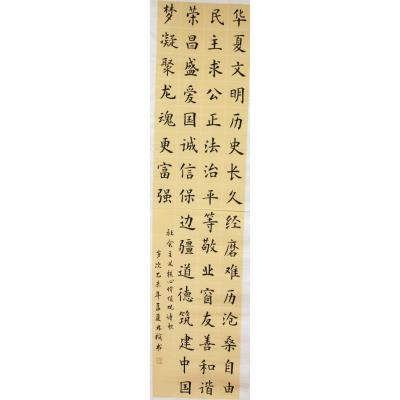 华夏文明历史长久经磨难历沧桑自由
民主求公正法治平等敬业窗友善和谐
荣昌盛爱国诚信保边疆道德筑建中国
梦凝聚龙魂更富强
社会主义核心价值观诗歌
岁次乙未年孟夏林书